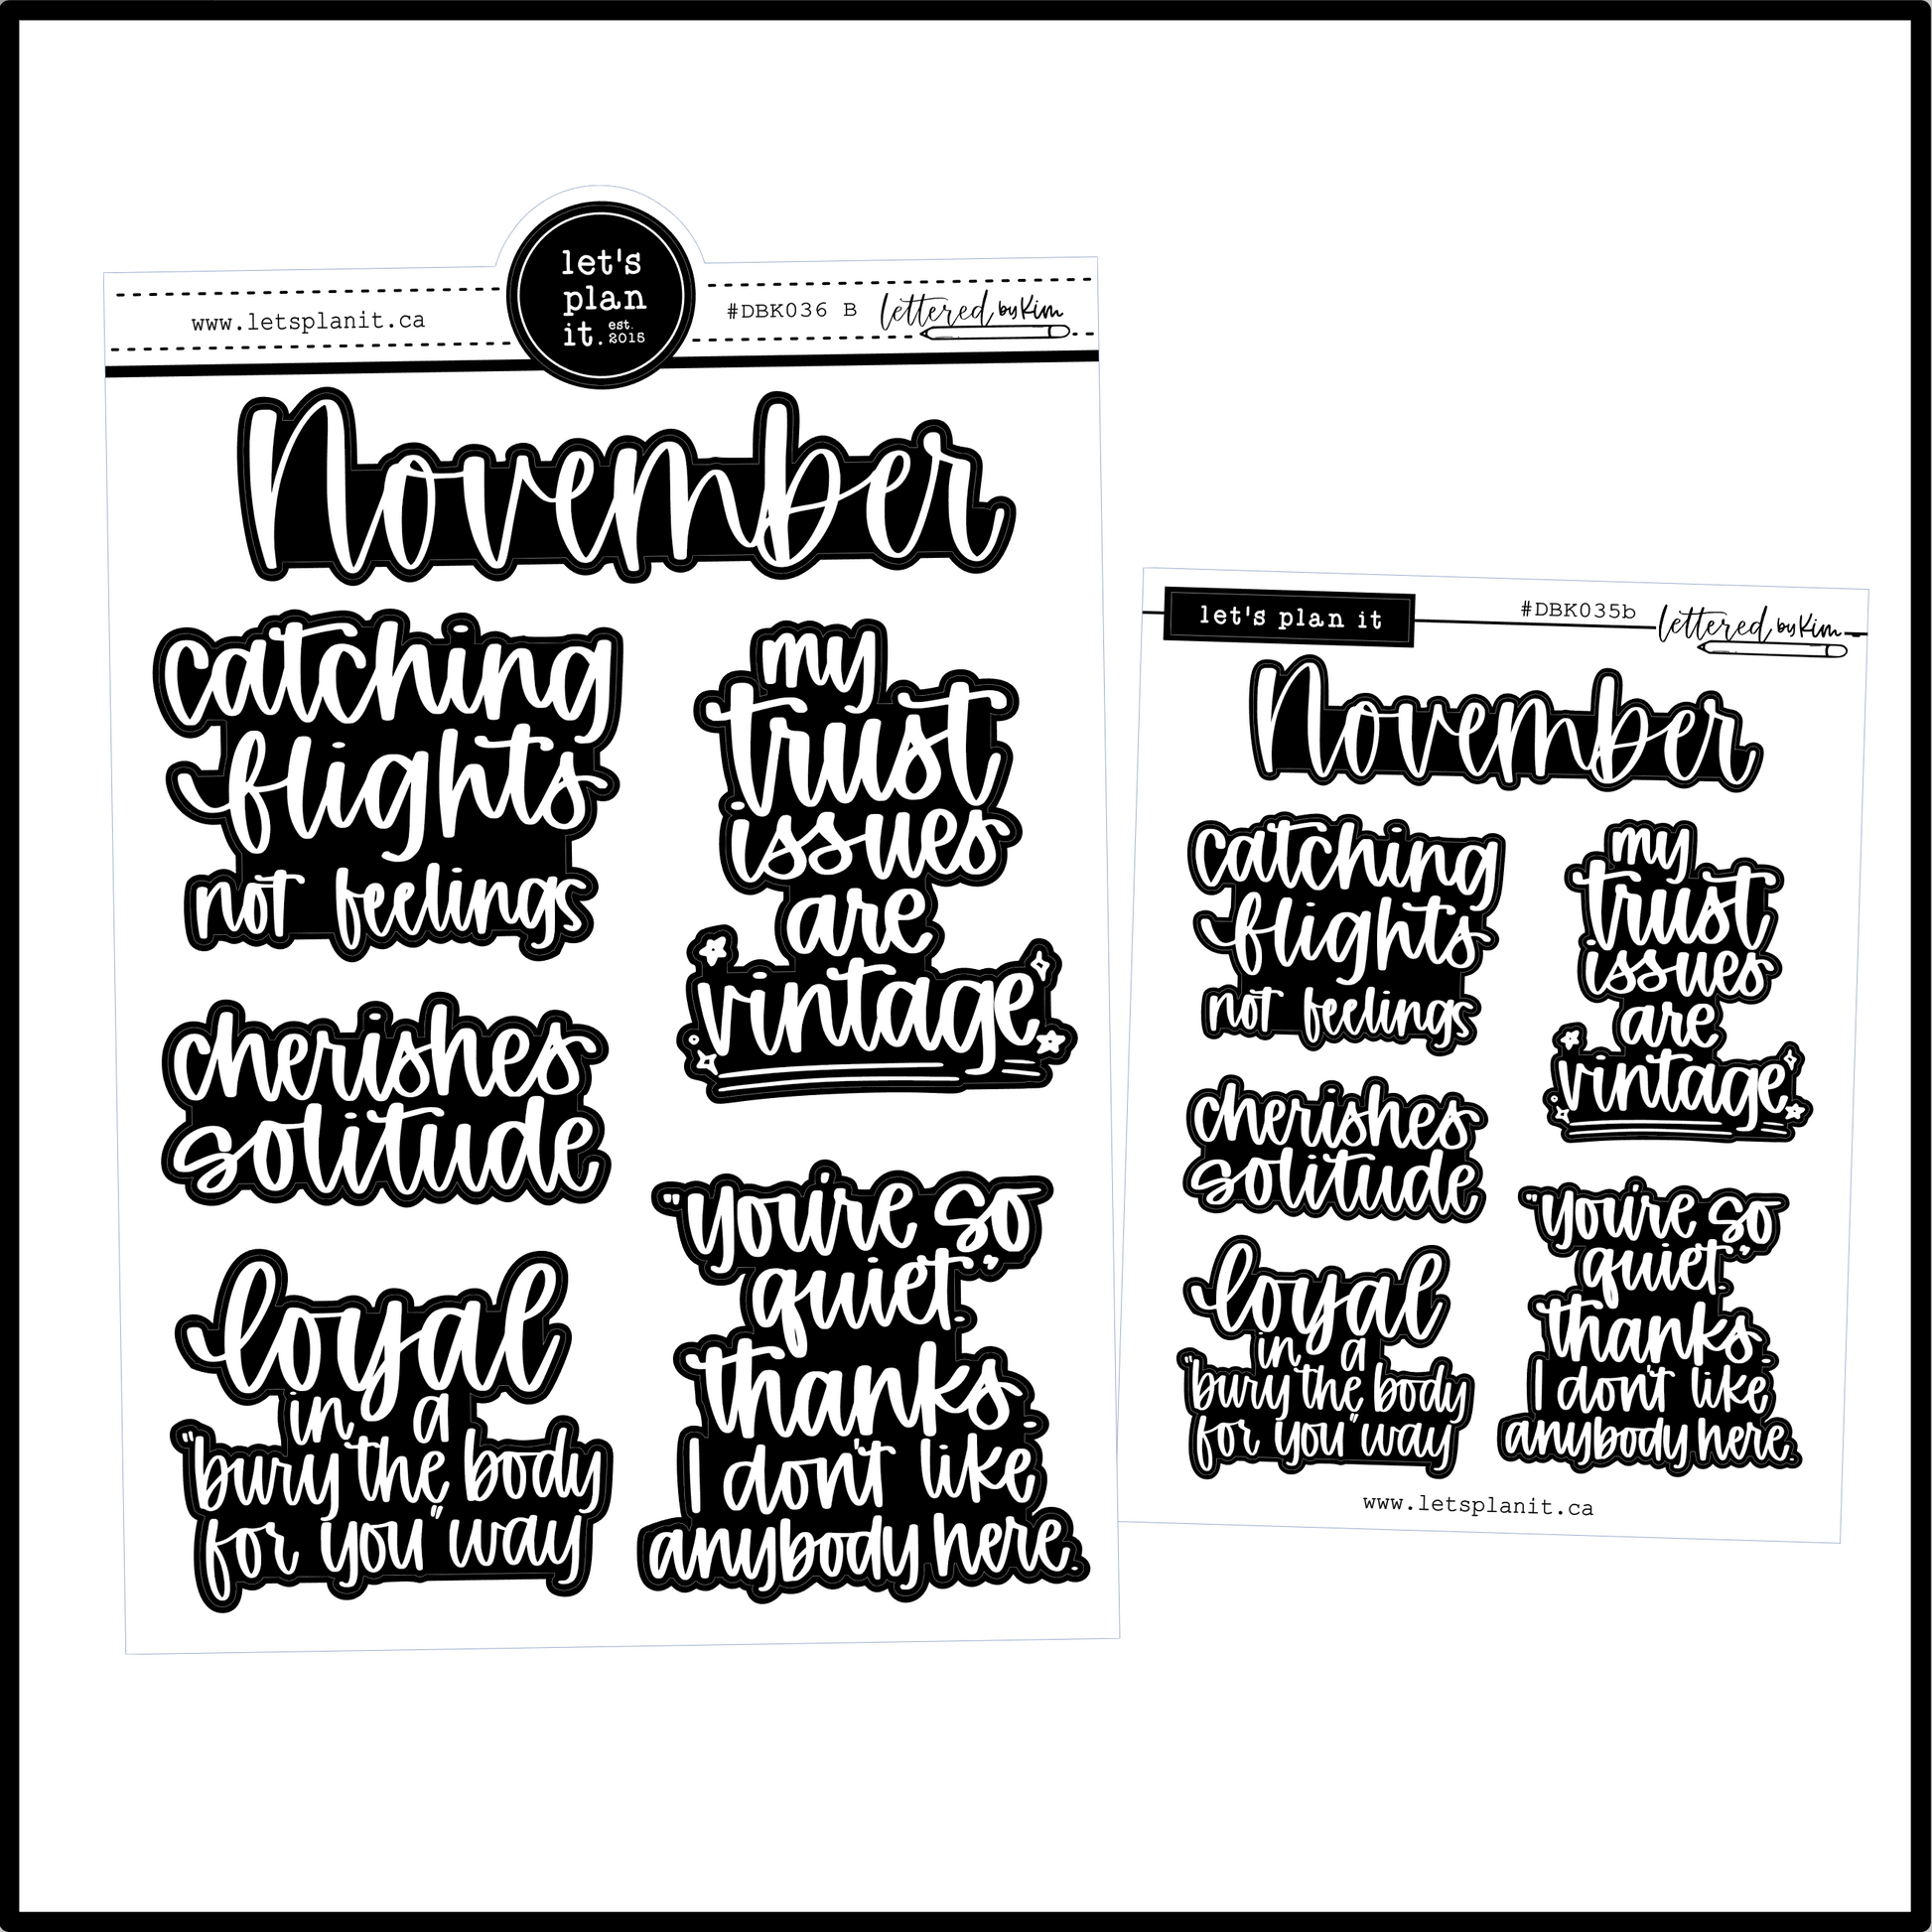 let's
plan
it. est. 2015
www.letsplanit.ca
#DBK036 B
lettered by Kim
November
catching
flights
not feelings
my
trust
issues
are
vintage
cherishes
solitude
"you're so
quiet."
thanks.
I don't like
anybody here.
loyal
in a
"bury the body
for you" way
let's plan it
#DBK035b
lettered by Kim
November
catching
flights
not feelings
my
trust
issues
are
vintage
cherishes
solitude
"you're so
quiet."
thanks.
I don't like
anybody here.
loyal
in a
"bury the body
for you" way
www.letsplanit.ca